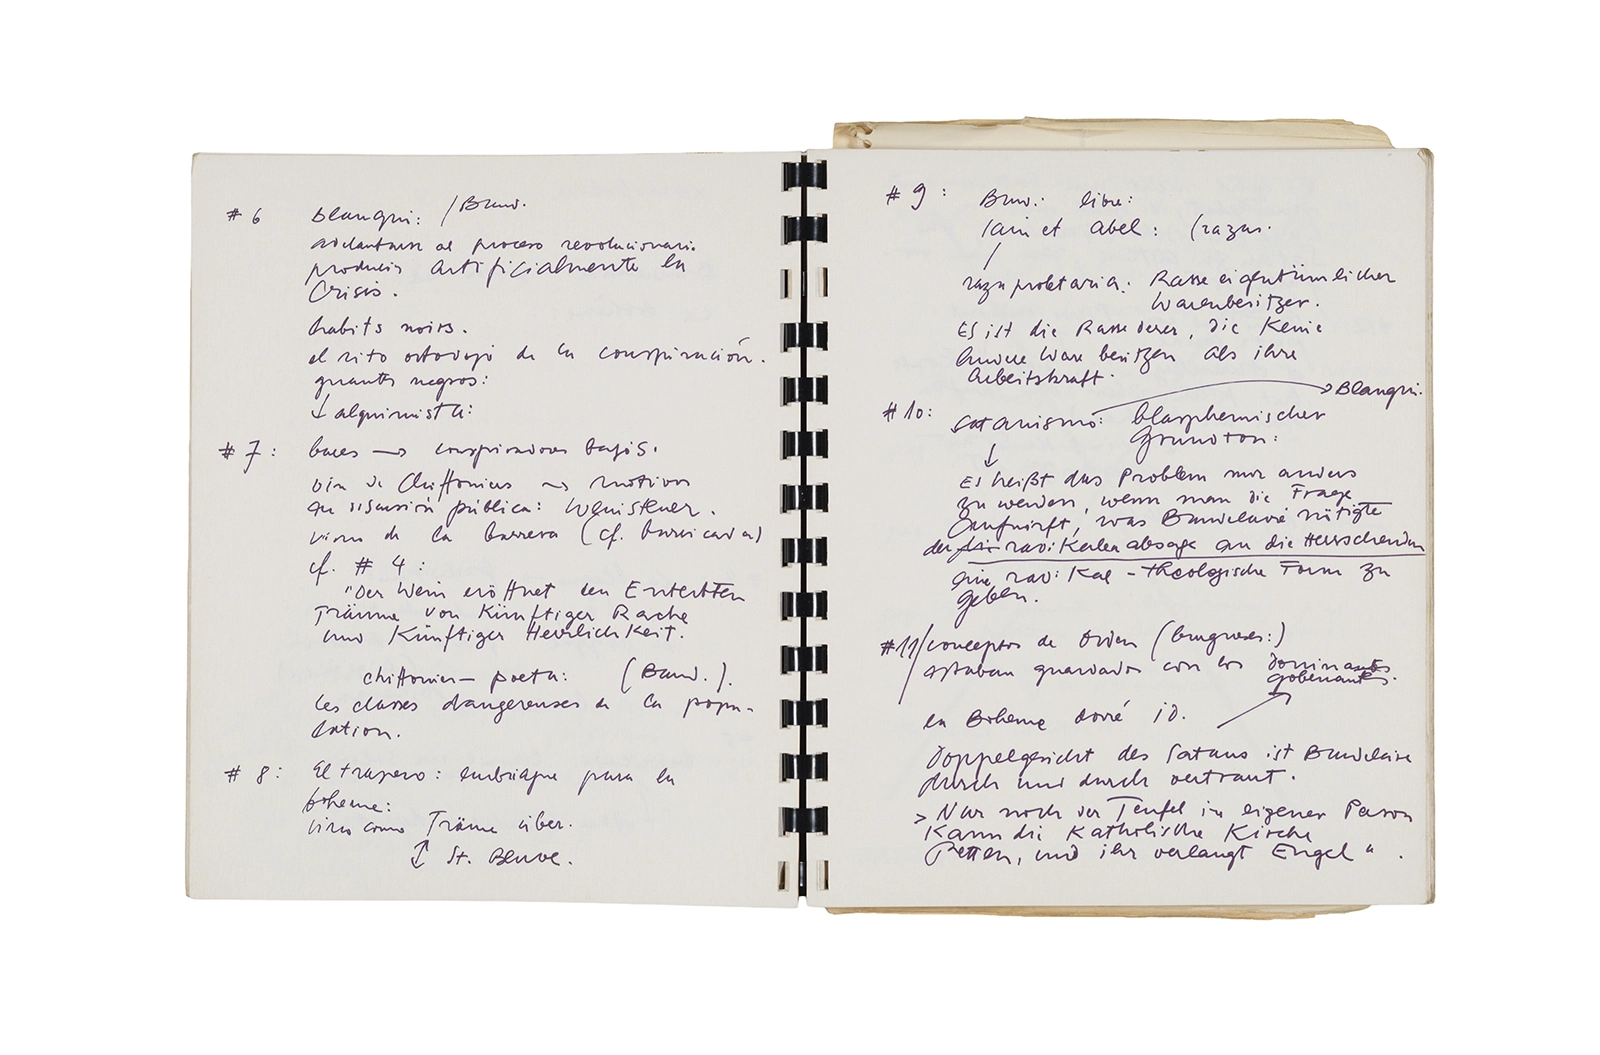 # 6 Blanqui: / Baud.
adelantarse al proceso revolucionario
producir artificialmente la
Crisis.
habits noirs.
el rito ortodojo de la conspiración.
guantes negros:
↓ alquimista:
# 7: bases → conspiradores bajos.
vin de Chiffoniers → motivos
en discusión pública: Weinsteuer.
vino de la barrera (cf. barricada)
cf. # 4:
"Der Wein eröffnet den Enterbten
Träume von Künftiger Rache
und Künftiger Herrlichkeit.
chiffonier – poeta: (Baud.).
les classes dangereuses de la popu-
lation.
# 8: El trapero: embriague para la
boheme:
vino como Träume über.
↕ St. Beuve.
# 9: Baud.: libre:
Cain et Abel: (razas.
raza proletaria: Rasse eigentümlicher
Warenbesitzer.
Es ist die Rasse derer, die Keine
andere Ware besitzen als ihre
Arbeitskraft.
→ Blanqui.
# 10: satanismo: blasphemischer
Grundton:
↓
Es heißt das Problem nur anders
zu wenden, wenn man die Frage
aufwirft, was Baudelaire nötigte
der radikalen absage an die Herrschenden
eine radikal-theologische Form zu
geben.
# 11/ conceptos de Orden (burgueses:)
estaban guardados con los dominantes
gobenantes.
la Boheme dorée id.
Doppelgesicht des Satans ist Baudelaire
durch und durch vertraut.
> Nur noch der Teufel in eigener Person
Kann die Katholische Kirche
Retten, und ihr verlangt Engel" .